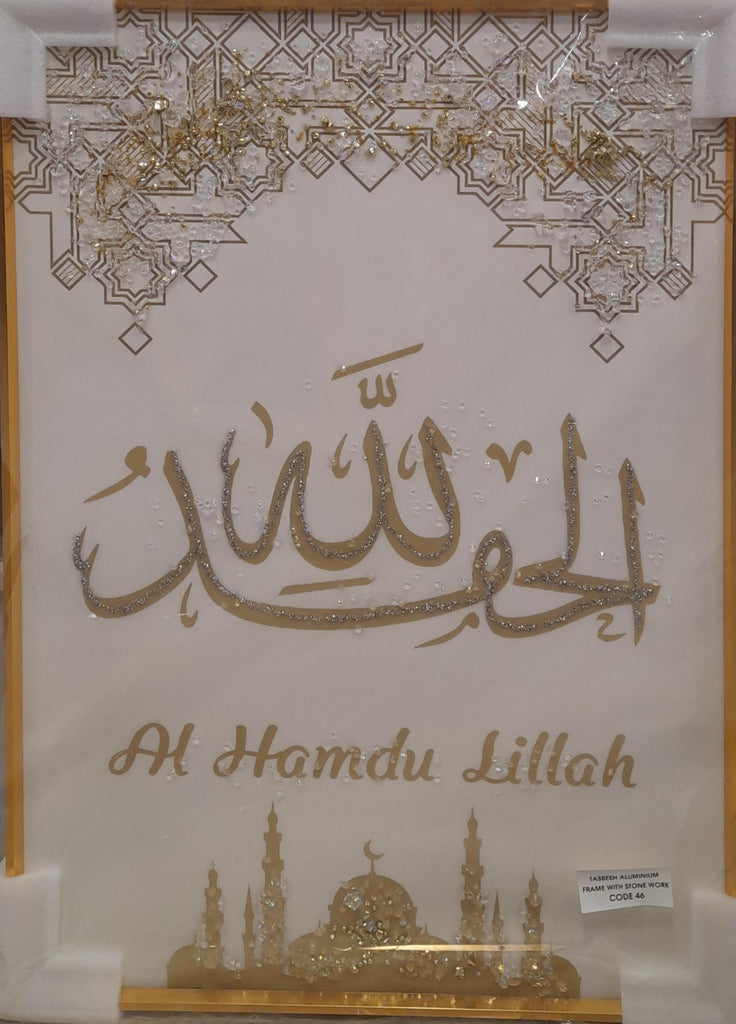 الحمد لله
Al Hamdu Lillah
TASBEEH ALUMINIUM
FRAME WITH STONE WORK
CODE 46